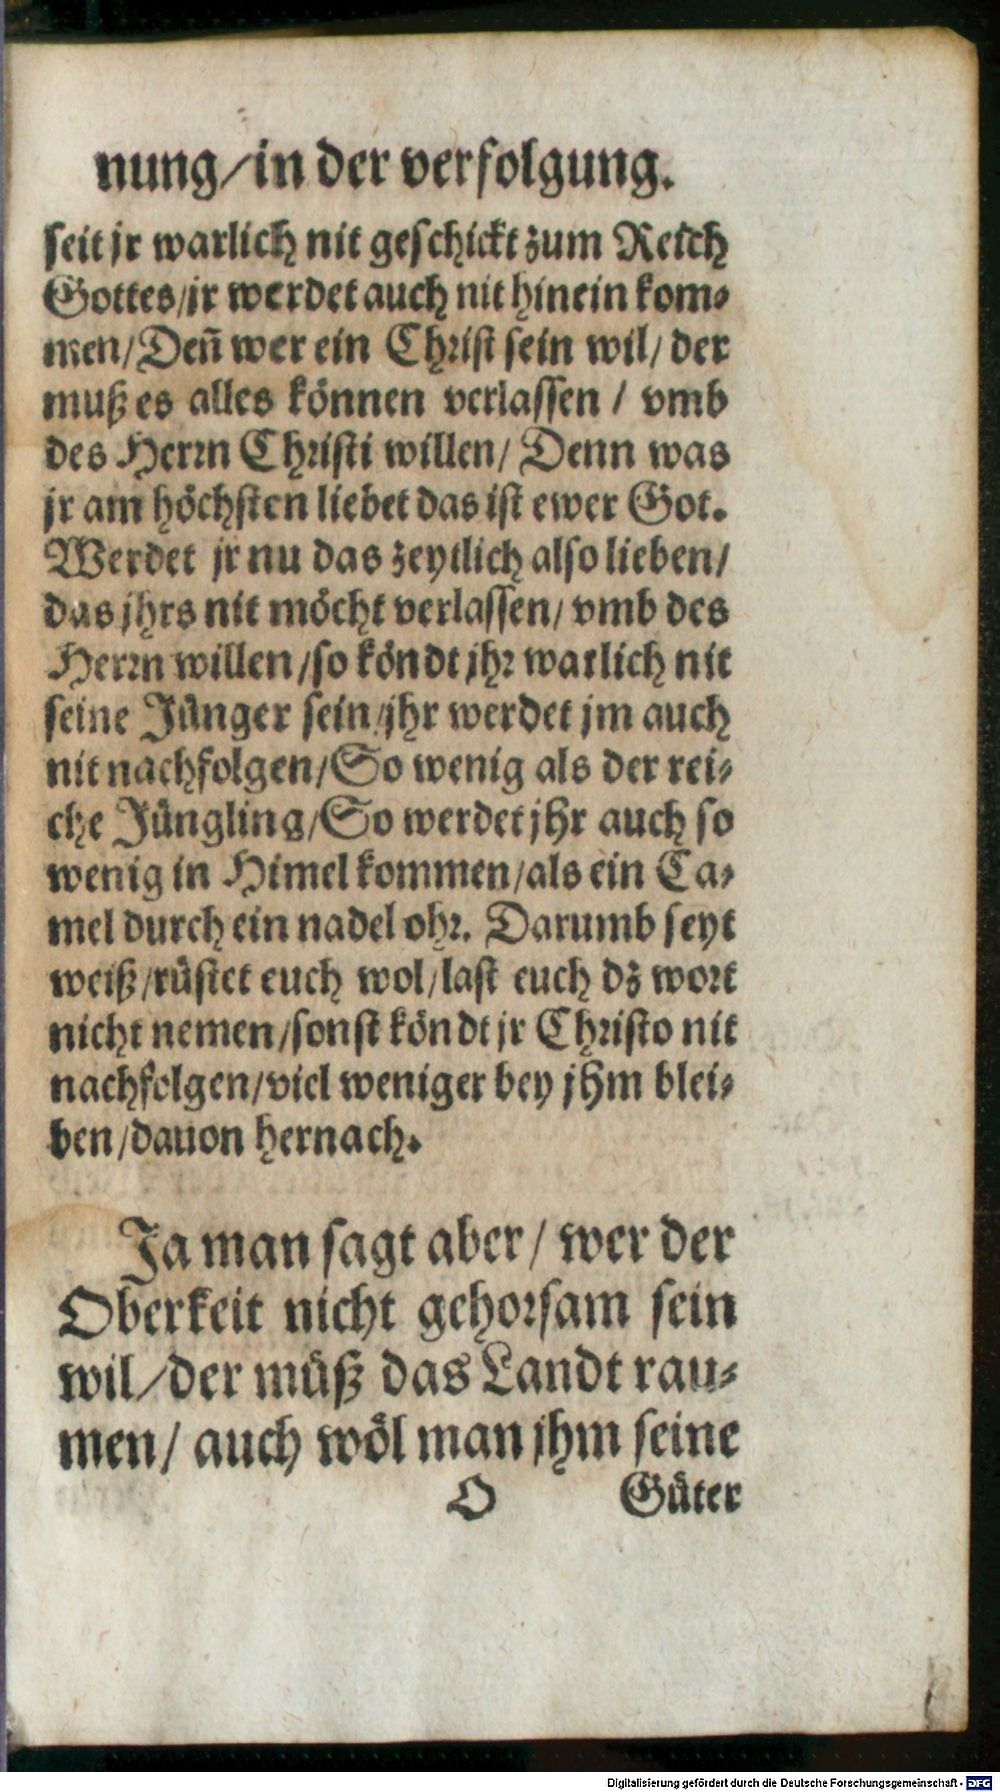 nung/in der verfolgung.
seit jr warlich nit geschickt zum Reich
Gottes/jr werdet auch nit hinein kom⸗
men/Deñ wer ein Christ sein wil/ der
muß es alles können verlassen / vmb
des Herrn Christi willen/ Denn was
jr am höchsten liebet das ist ewer Got.
Werdet jr nu das zeytlich also lieben/
das jhrs nit möcht verlassen/ vmb des
Herrn willen/so köndt jhr warlich nit
seine Jünger sein/jhr werdet jm auch
nit nachfolgen/So wenig als der rei⸗
che Jüngling/So werdet jhr auch so
wenig in Himel kommen/als ein Ca⸗
mel durch ein nadel ohr. Darumb seyt
weiß/rüstet euch wol/last euch dz wort
nicht nemen/sonst köndt jr Christo nit
nachfolgen/viel weniger bey jhm blei⸗
ben/dauon hernach.
Ja man sagt aber/ wer der
Oberkeit nicht gehorsam sein
wil/der müß das Landt rau⸗
men/ auch wöl man jhm seine
O Güter
Digitalisierung gefördert durch die Deutsche Forschungsgemeinschaft - DFG